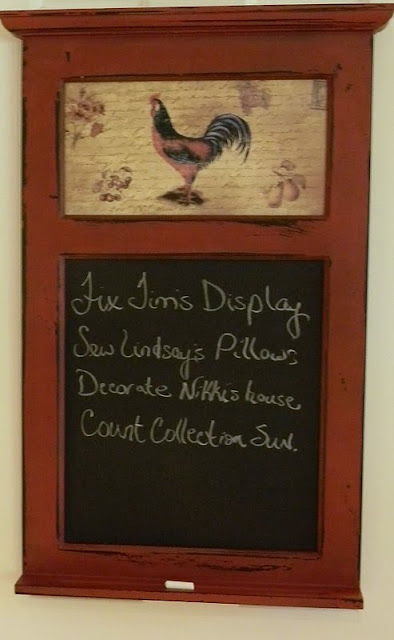 Fix Jim's Display
Sew Lindsay's Pillows
Decorate Nikki's house
Count Collection Sun.